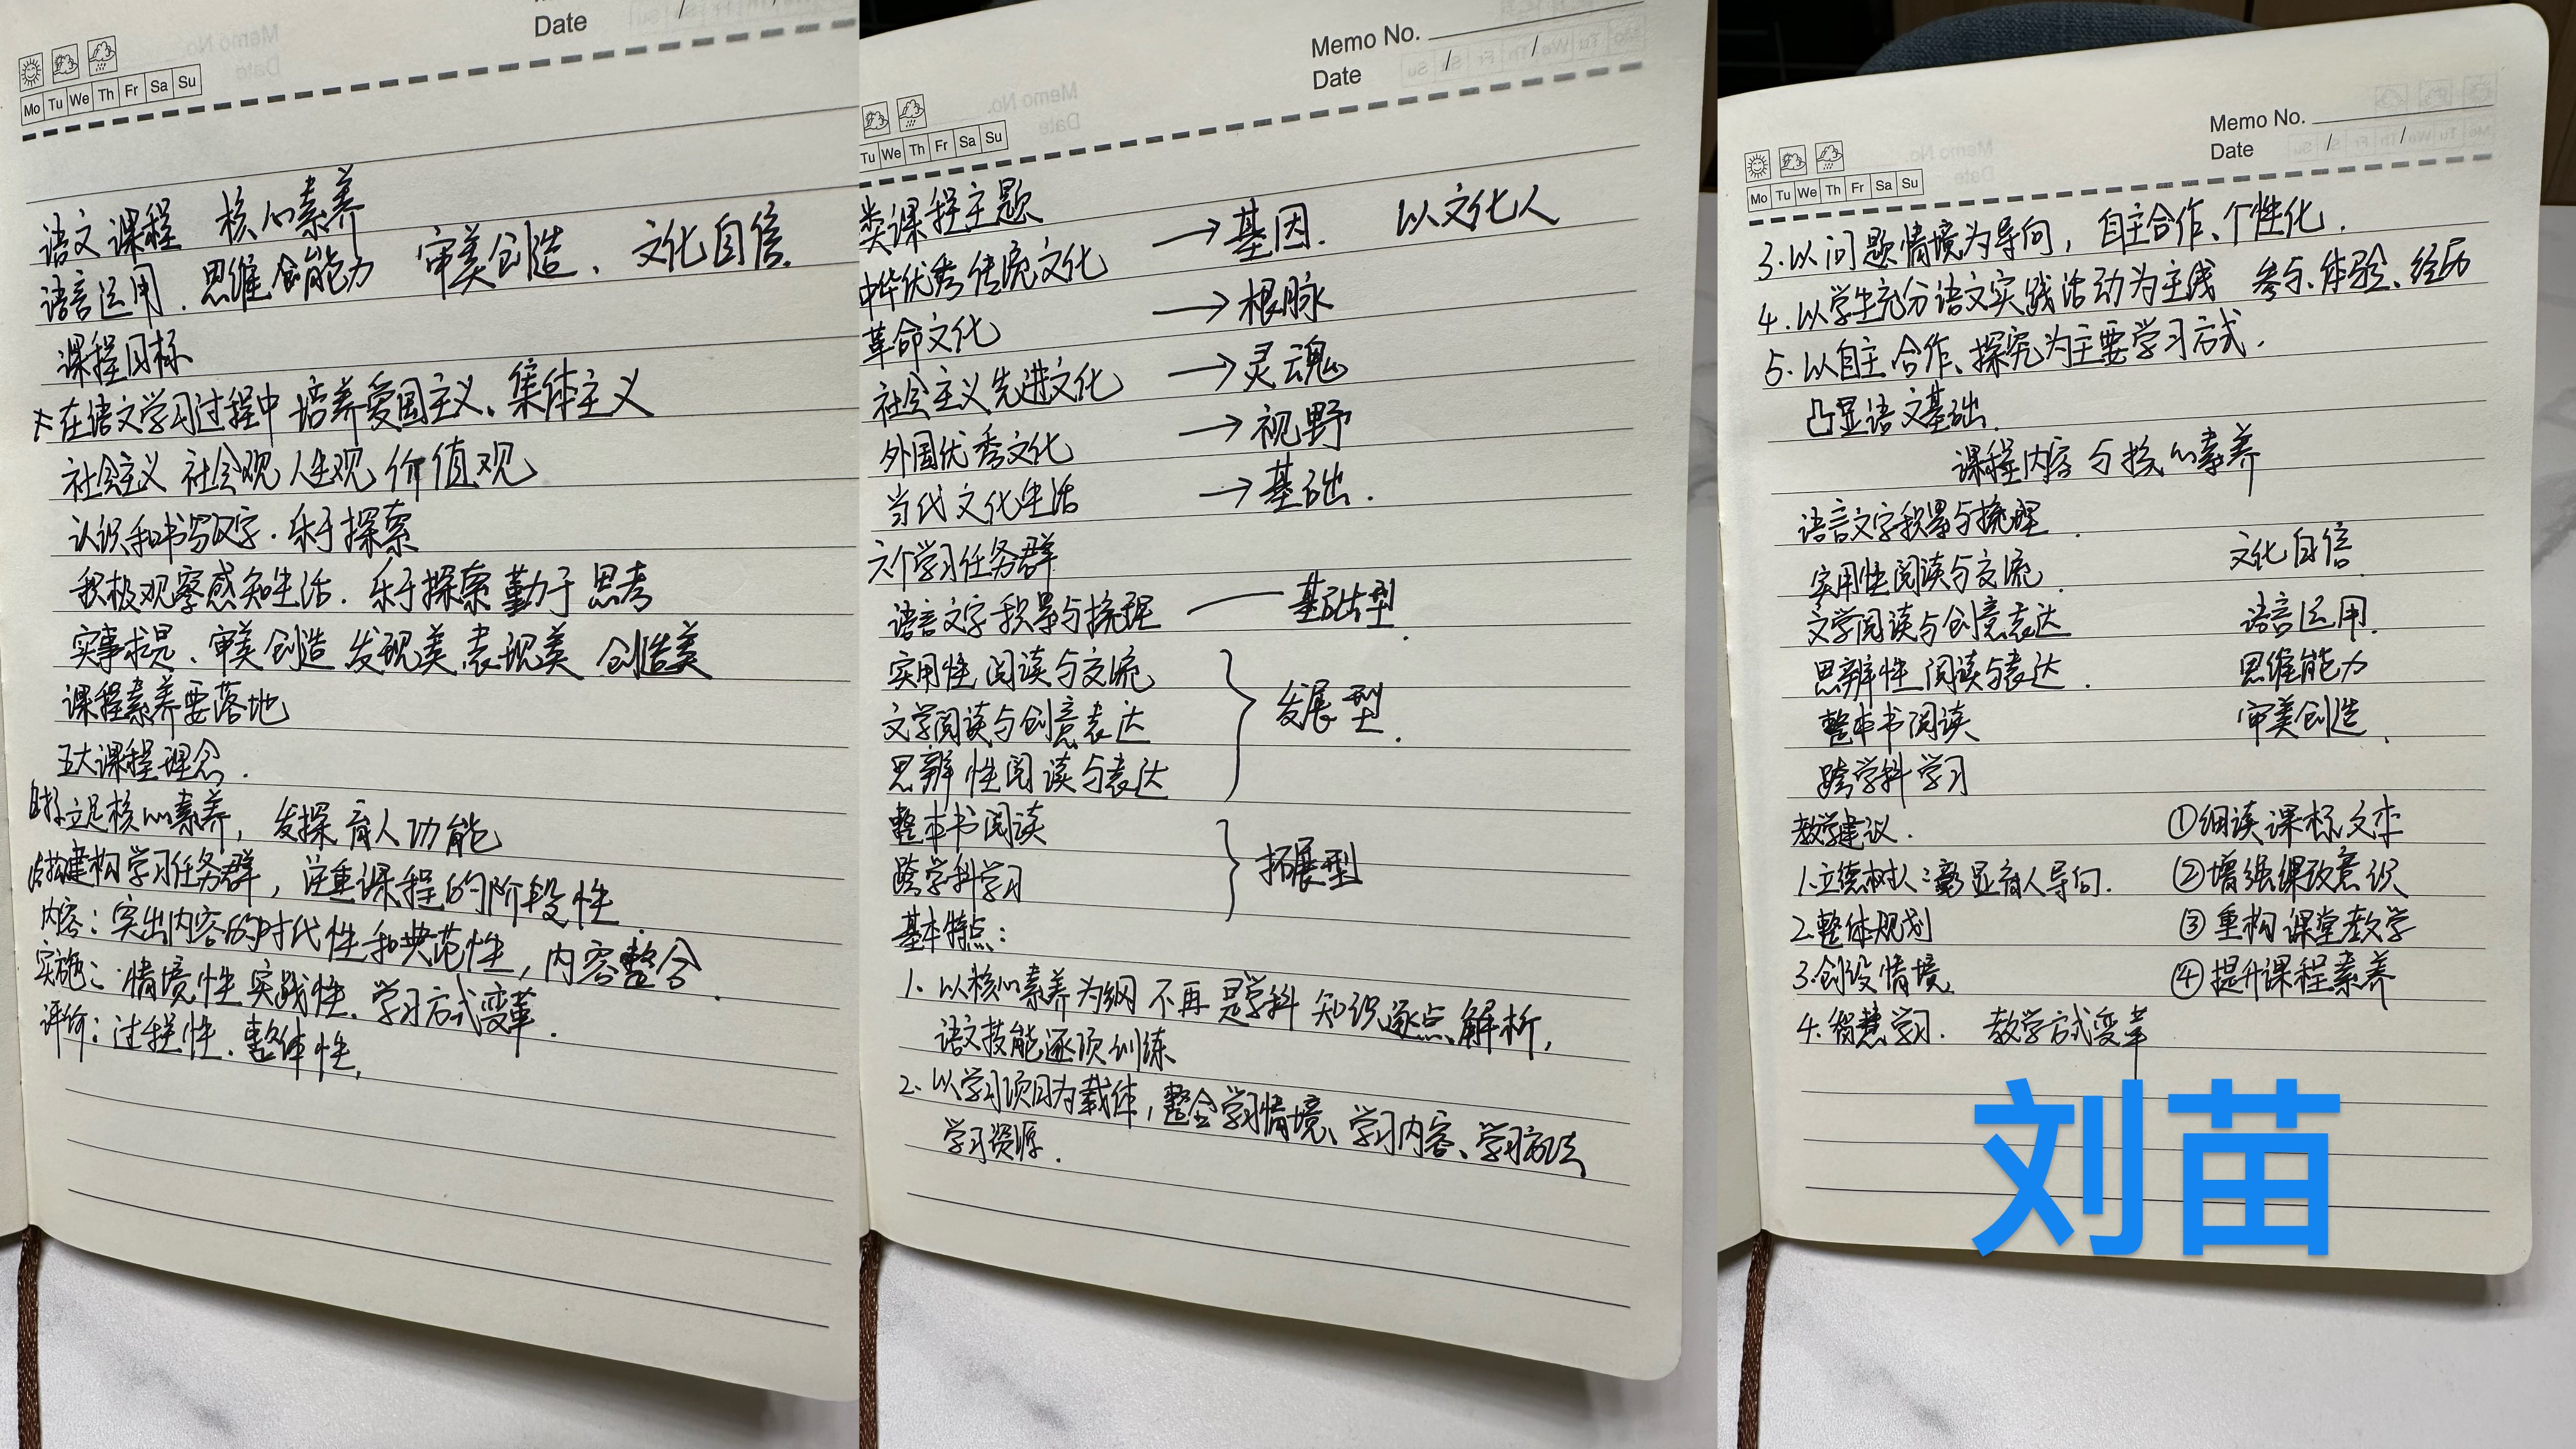 Date / /
Mo Tu We Th Fr Sa Su
语文课程 核心素养
语言运用、思维能力 审美创造、文化自信.
课程目标
在语文学习过程中 培养爱国主义、集体主义
社会主义 社会观 人生观 价值观
认识和书写汉字. 乐于探索
积极观察感知生活. 乐于探索 勤于思考
实事求是、审美创造 发现美 表现美 创造美
课程素养要落地
五大课程理念.
立足核心素养, 发探育人功能
建构学习任务群, 注重课程的阶段性.
内容: 突出内容的时代性和典范性, 内容整合.
实施: 情境性 实践性. 学习方式变革.
评价: 过程性. 整体性.
Memo No.
Date / /
Tu We Th Fr Sa Su
类课程主题
中华优秀传统文化 → 基因. 以文化人
革命文化 → 根脉
社会主义先进文化 → 灵魂
外国优秀文化 → 视野
当代文化生活 → 基础.
六个学习任务群
语言文字积累与梳理 — 基础型.
实用性阅读与交流
文学阅读与创意表达 发展型.
思辨性阅读与表达
整本书阅读
跨学科学习 拓展型
基本特点:
1. 以核心素养为纲 不再是学科知识逐点解析,
语文技能逐项训练
2. 以学习项目为载体, 整合学习情境、学习内容、学习方法
学习资源.
Memo No.
Date / /
Mo Tu We Th Fr Sa Su
3. 以问题情境为导向, 自主合作、个性化.
4. 以学生充分语文实践活动为主线 参与、体验、经历
5. 以自主合作、探究为主要学习方式.
凸显语文基础.
课程内容与核心素养
语言文字积累与梳理.
文化自信
实用性阅读与交流.
文学阅读与创意表达 语言运用.
思辨性阅读与表达. 思维能力
整本书阅读 审美创造.
跨学科学习
教学建议. ①细读课标文本
1. 立德树人: 彰显育人导向. ②增强课改意识
2. 整体规划 ③重构课堂教学
3. 创设情境 ④提升课程素养
4. 智慧学习. 教学方式变革
刘苗